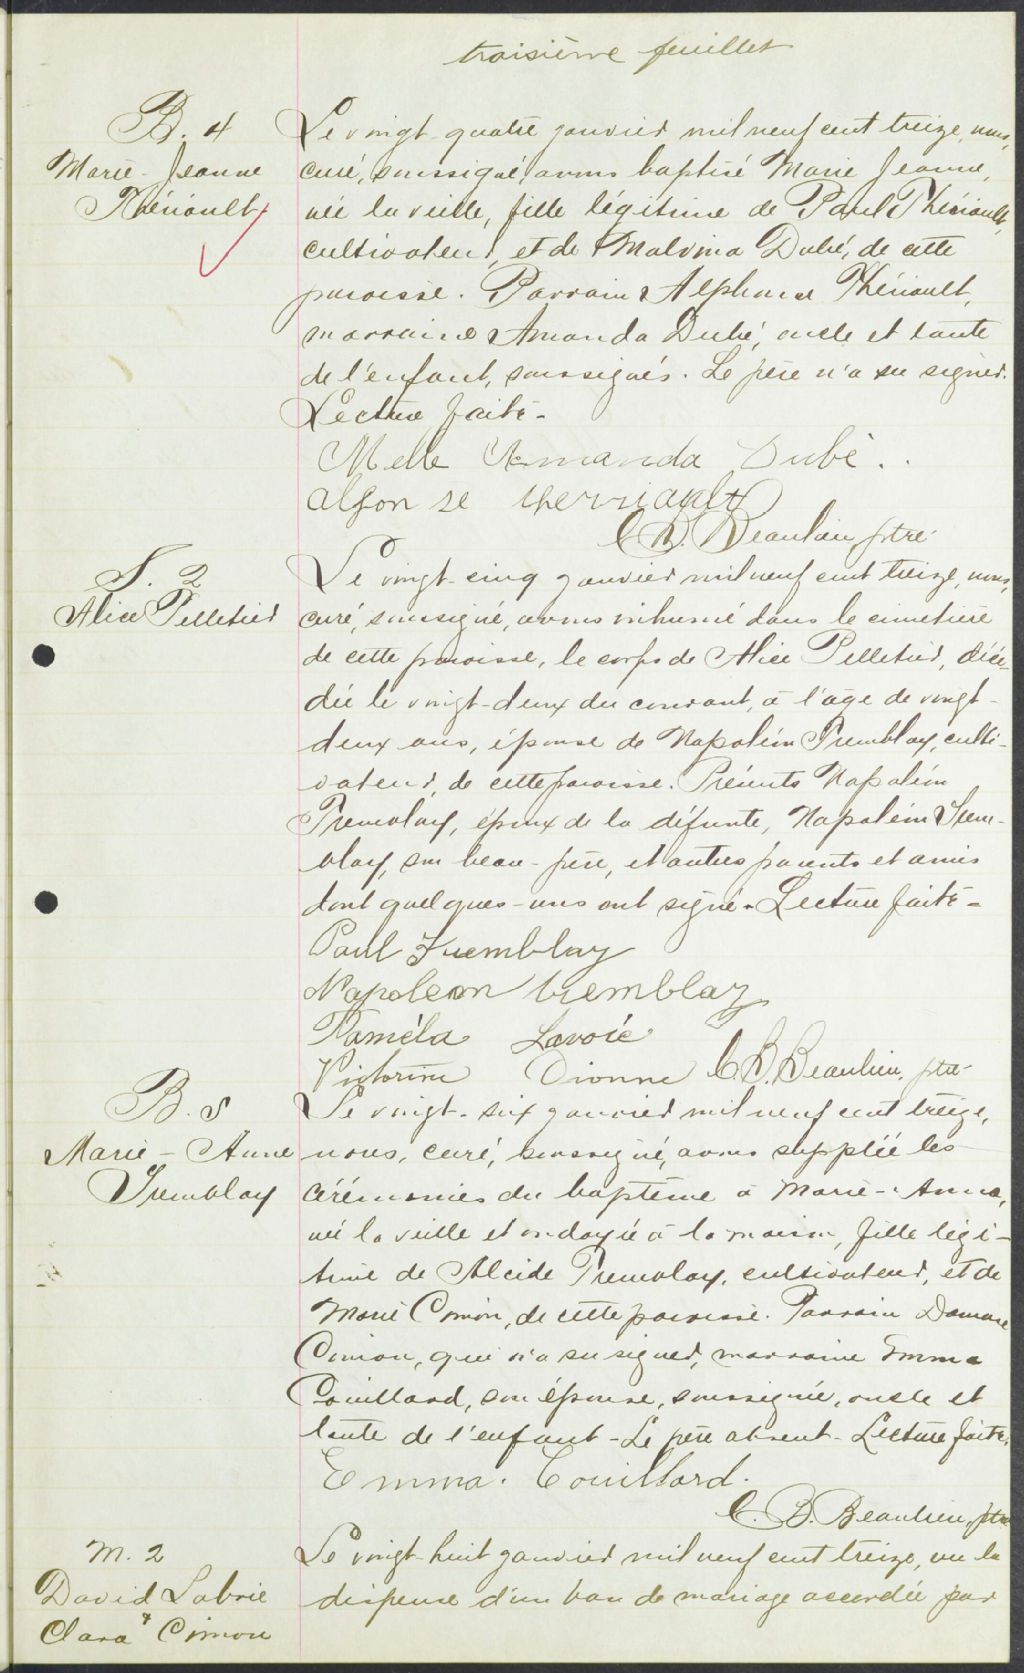 troisième feuillet
B. 4
Marie-Jeanne
Thériault
Le vingt-quatre janvier mil neuf cent treize, nous,
curé, soussigné, avons baptisé Marie Jeanne,
née la veille, fille légitime de Paul Thériault,
cultivateur, et de Malvina Dubé, de cette
paroisse. Parrain Alphonse Thériault,
marraine Amanda Dubé, oncle et tante
de l'enfant, soussignés. Le père n'a su signer.
Lecture faite-
Melle Amanda Dubé..
alfonse therriault
C. B. Beaulieu, ptre.
S. 2
Alice Pelletier
Le vingt-cinq janvier mil neuf cent treize, nous,
curé, soussigné, avons inhumé dans le cimetière
de cette paroisse, le corps de Alice Pelletier, décé-
dée le vingt-deux du courant, à l'âge de vingt-
deux ans, épouse de Napoléon Tremblay, culti-
vateur, de cette paroisse. Présents Napoléon
Tremblay, époux de la défunte, Napoléon Trem-
blay, son beau-père, et autres parents et amis
dont quelques-uns ont signé. Lecture faite-
Paul Tremblay
Napoleon tremblay
Paméla Lavoie
Victorine Dionne C. B. Beaulieu, ptre-
B. 5
Marie-Anne
Tremblay
Le vingt-six janvier mil neuf cent treize,
nous, curé, soussigné, avons supplée les
cérémonies du baptême à Marie-Anna,
née la veille et ondoyée à la maison, fille légi-
time de Alcide Tremblay, cultivateur, et de
Marie Cimon, de cette paroisse. Parrain Damase
Cimon, qui n'a su signer, marraine Emma
Couillard, son épouse, soussignée, oncle et
tante de l'enfant-Le père absent-Lecture faite.
Emma. Couillard.
C. B. Beaulieu, ptre
M. 2
David Labrie
&
Clara Cimon
Le vingt-huit janvier mil neuf cent treize, vu la
dispense d'un ban de mariage accordée par